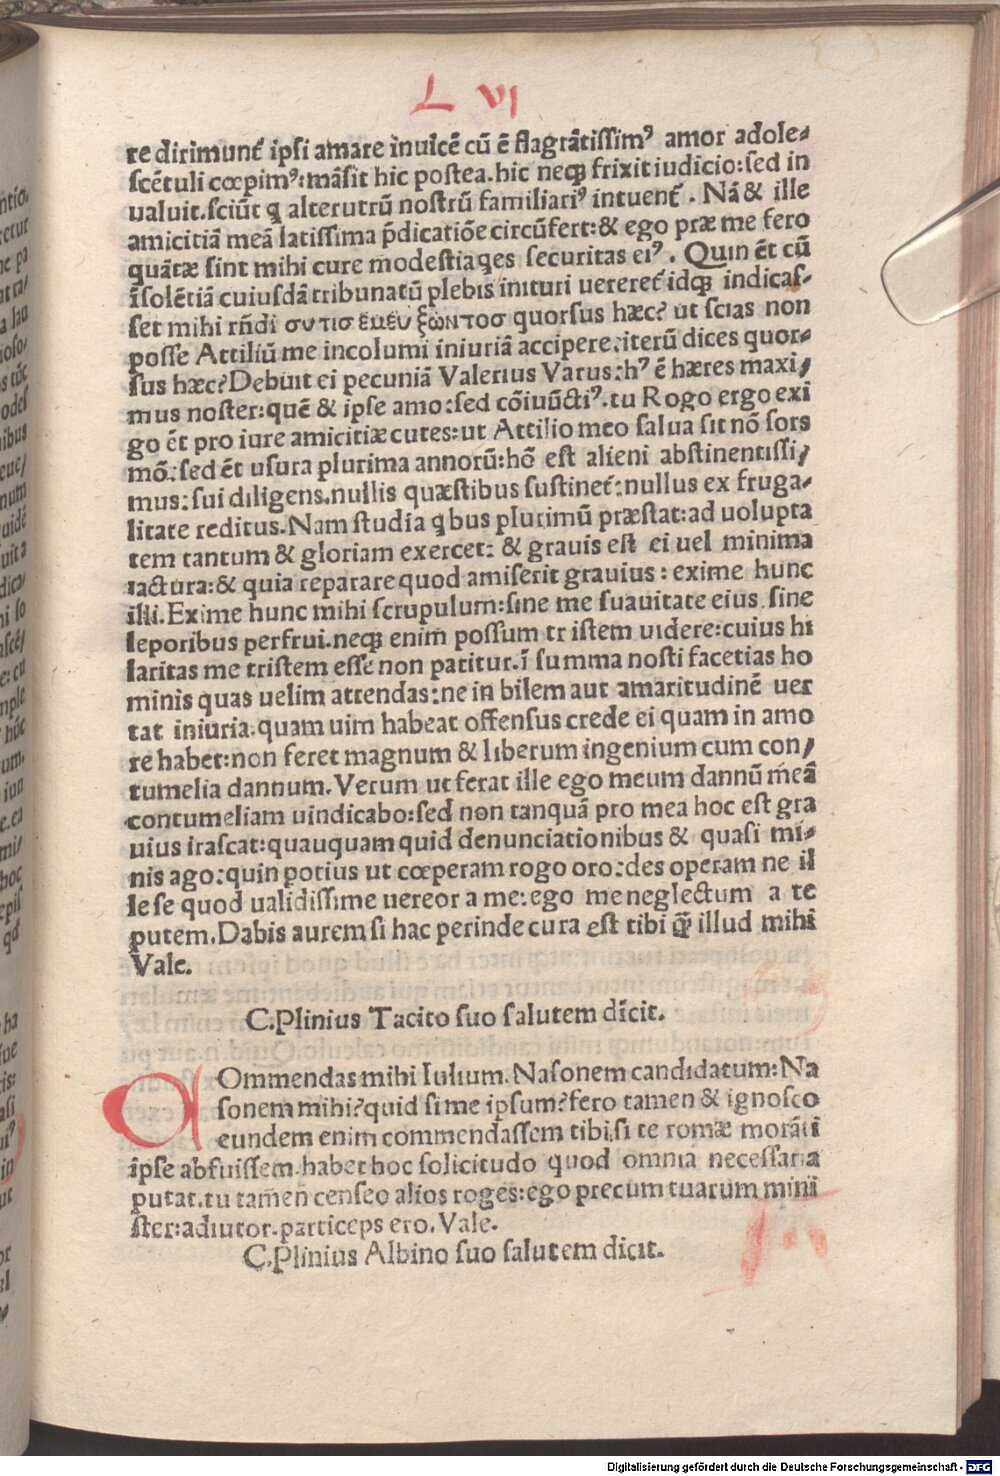 L VI
re dirimunt᷒ ipsi amare inuicē cū ē flagrātissim⁹ amor adole⸗
scētuli cœpim⁹: māsit hic postea. hic neqꝫ frixit iudicio: sed in
ualuit. sciūt q alterutrū nostrū familiari⁹ intuent᷒. Nā & ille
amicitiā meā latissima p̄dicatiōe circūfert: & ego præ me fero
quātæ sint mihi cure modestia qes securitas ei⁹. Quin ēt cū
īsolētiā cuiusdā tribunatū plebis inituri ueteret᷒ idqꝫ indicas⸗
set mihi rn̄di συτισ ἐμευ ξῶντοσ quorsus hæc? ut scias non
posse Attiliū me incolumi iniuriā accipere. iterū dices quor⸗
sus hæc? Debuit ei pecuniā Valerius Varus: h⁹ ē hæres maxi/
mus noster: quē & ipse amo: sed cōiūcti⁹. tu Rogo ergo exi
go ēt pro iure amicitiæ cutes: ut Attilio meo salua sit nō sors
mō: sed ēt usura plurima annorū: hō est alieni abstinentissi/
mus: sui diligens. nullis quæstibus sustinet᷒: nullus ex fruga⸗
litate reditus. Nam studia qbus plurimū præstat: ad uolupta
tem tantum & gloriam exercet: & grauis est ei uel minima
iactura: & quia reparare quod amiserit grauius: exime hunc
illi. Exime hunc mihi scrupulum: sine me suauitate eius. sine
leporibus perfrui. neqꝫ enim possum tr istem uidere: cuius hi
laritas me tristem esse non patitur. ī summa nosti facetias ho
minis quas uelim attendas: ne in bilem aut amaritudinē uer
tat iniuria. quam uim habeat offensus crede ei quam in amo
re habet: non feret magnum & liberum ingenium cum con/
tumelia dannum. Verum ut ferat ille ego meum dannū meā
contumeliam uindicabo: sed non tanquā pro mea hoc est gra
uius irascat: quauquam quid denunciationibus & quasi mi⸗
nis ago: quin potius ut cœperam rogo oro: des operam ne il
le se quod ualidissime uereor a me: ego me neglectum a te
putem. Dabis aurem si hac perinde cura est tibi q̄ꝫ illud mihi
Vale.
C. Plinius Tacito suo salutem dicit.
COmmendas mihi Iulium. Nasonem candidatum: Na
sonem mihi? quid si me ipsum? fero tamen & ignosco
eundem enim commendassem tibi. si te romæ morāti
ipse abfuissem. habet hoc solicitudo quod omnia necessaria
putat. tu tamen censeo alios roges: ego precum tuarum mini
ster: adiutor. particeps ero. Vale.
C. Plinius Albino suo salutem dicit.
Digitalisierung gefördert durch die Deutsche Forschungsgemeinschaft - DFG